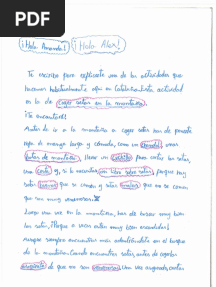 PDF
¡Hola Amanda! ¡Hola Alex!
Te escribo para explicarte una de las actividades que
hacemos habitualmente aquí en Cataluña. Esta actividad
es la de coger setas en la montaña.
¡Te encantará!
Antes de ir a la montaña a coger setas has de ponerte
ropa de manga larga y cómoda, como un chandal, usar
botas de montaña, llevar un cuchillo para cortar las setas,
una cesta y, si lo necesitas, un libro sobre setas, porque hay
setas buenas que se comen y setas malas que no se comen
que son muy venenosas.
Luego una vez en la montaña, has de buscar muy bien
las setas, ¡Porque a veces están muy bien escondidas!
Aunque siempre encuentras setas adentrándote en el bosque
de la montaña. Cuando encuentras setas, antes de cogerlas
asegúrate de que no son venenosas. Una vez asegurado, cortas